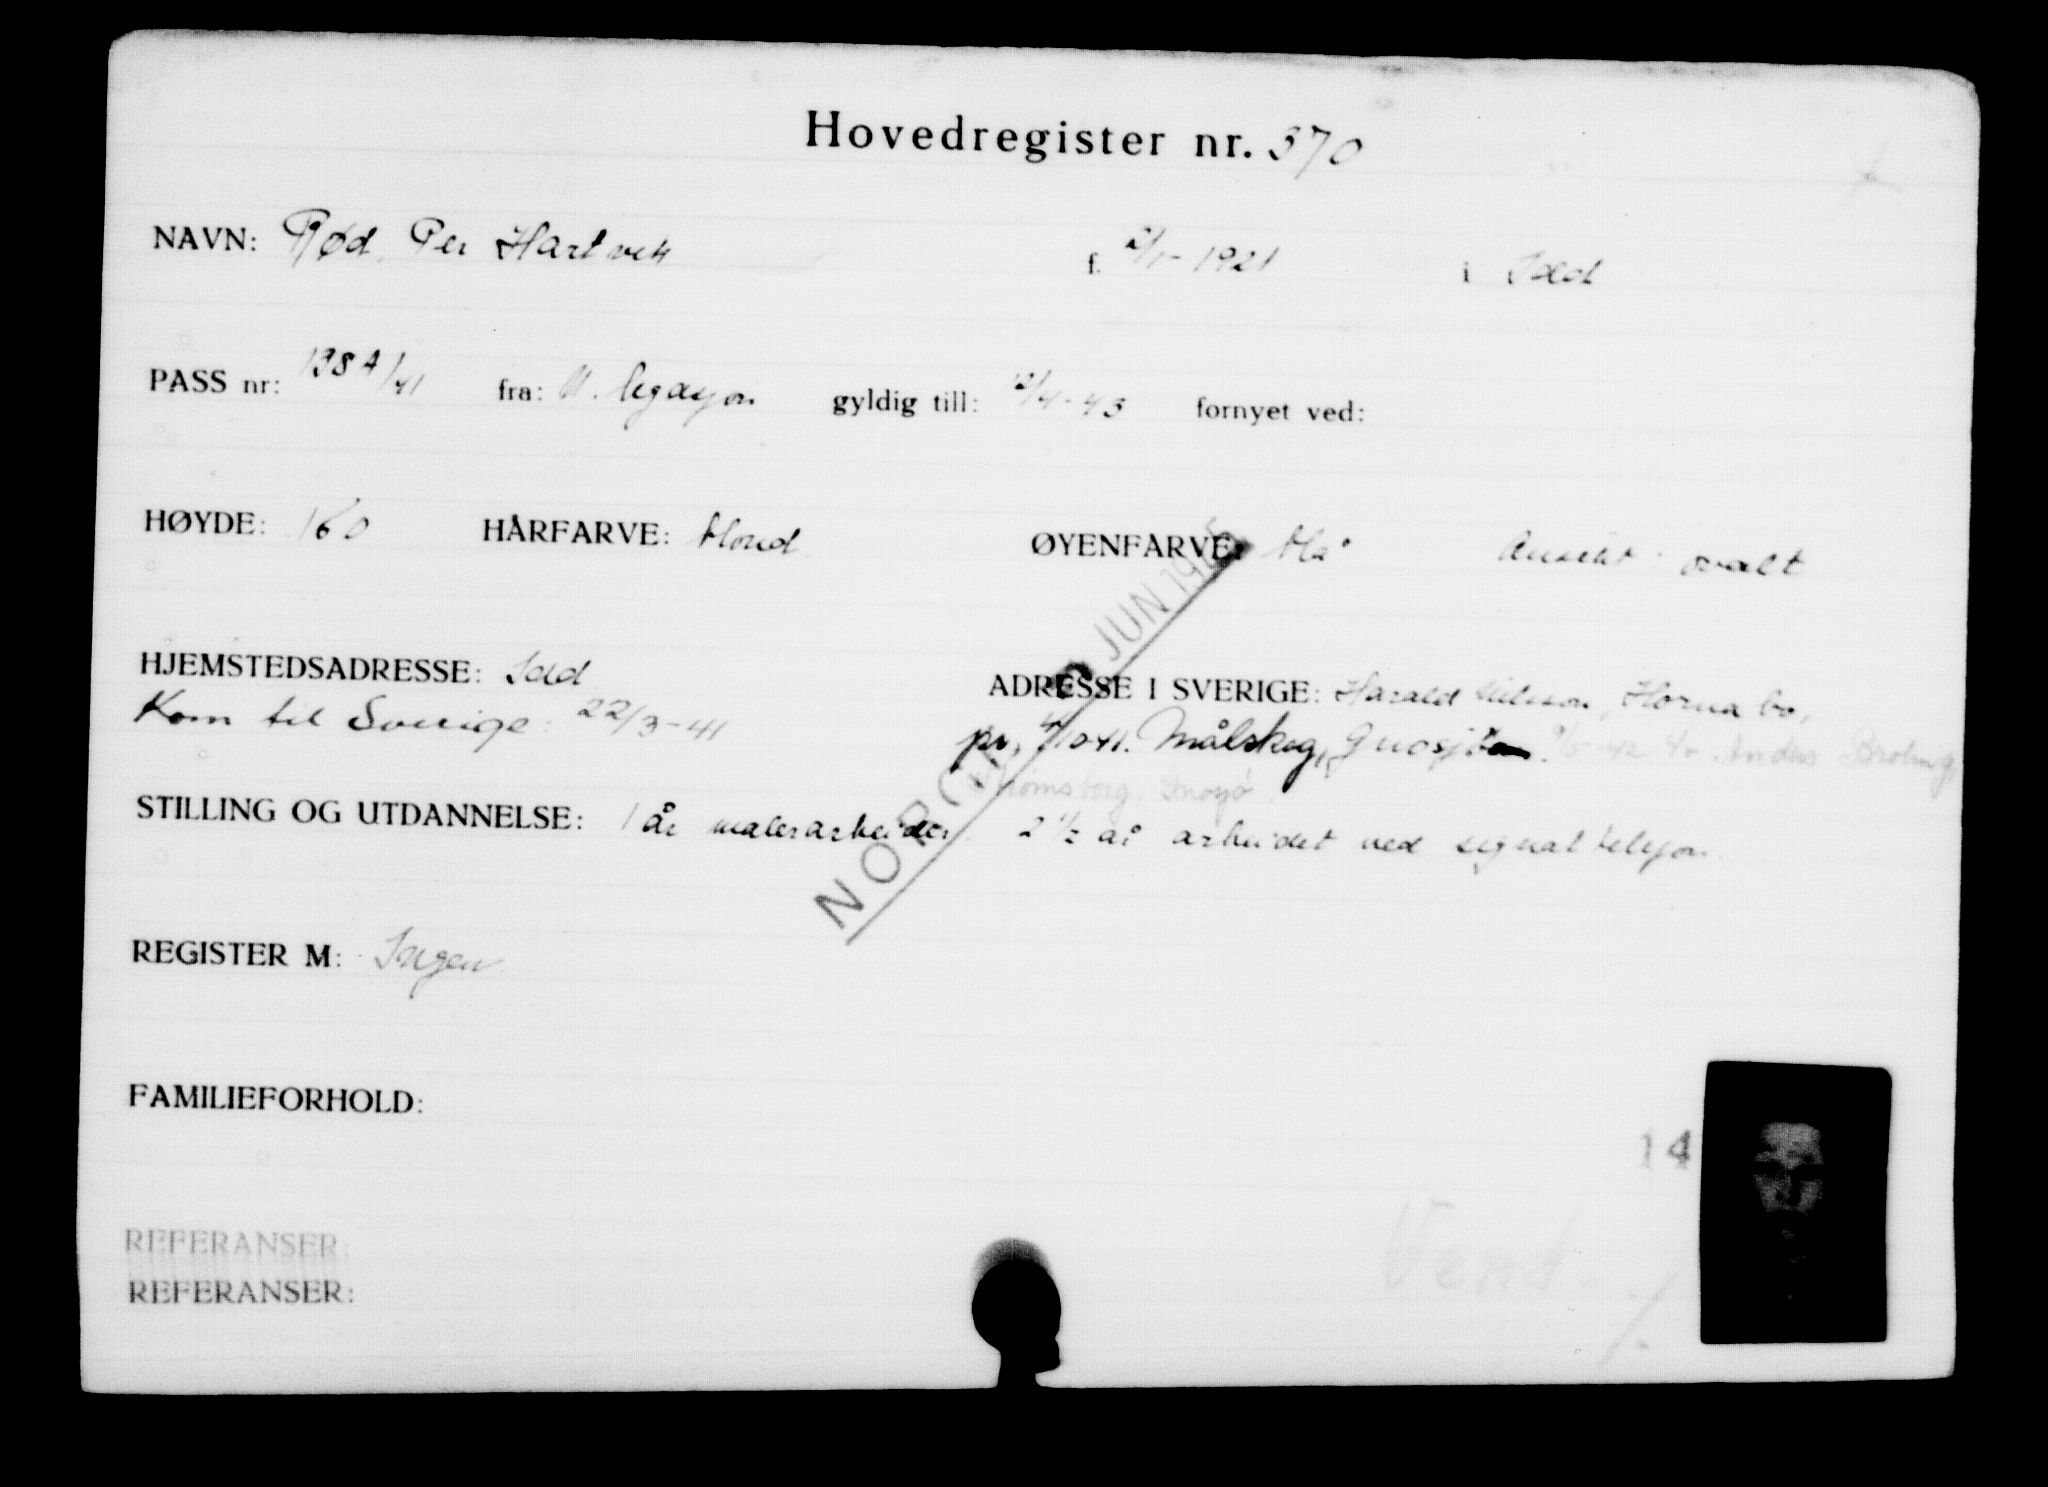 Hovedregister nr. 370
NAVN: Rød, Per Hartvik f. 2/1-1921 i Idd
PASS nr: 1384/41 fra: N. legasjon gyldig till: 12/4-43 fornyet ved:
HØYDE: 160 HÅRFARVE: blond ØYENFARVE: blå Ansikt: ovalt
HJEMSTEDSADRESSE: Idd ADRESSE I SVERIGE: Harald Nilsson, Hornabo,
Kom til Sverige: 22/3-41 pr. 4/10 41. Målskog, Gnosjö 9/5-42 Anders Broling,
Gnosjö.
STILLING OG UTDANNELSE: 1 år malerarbeider. 2 1/2 år arbeidet ved
REGISTER M: Ingen
FAMILIEFORHOLD:
14
REFERANSER:
REFERANSER:
Vend.
NORGE
JUN 19